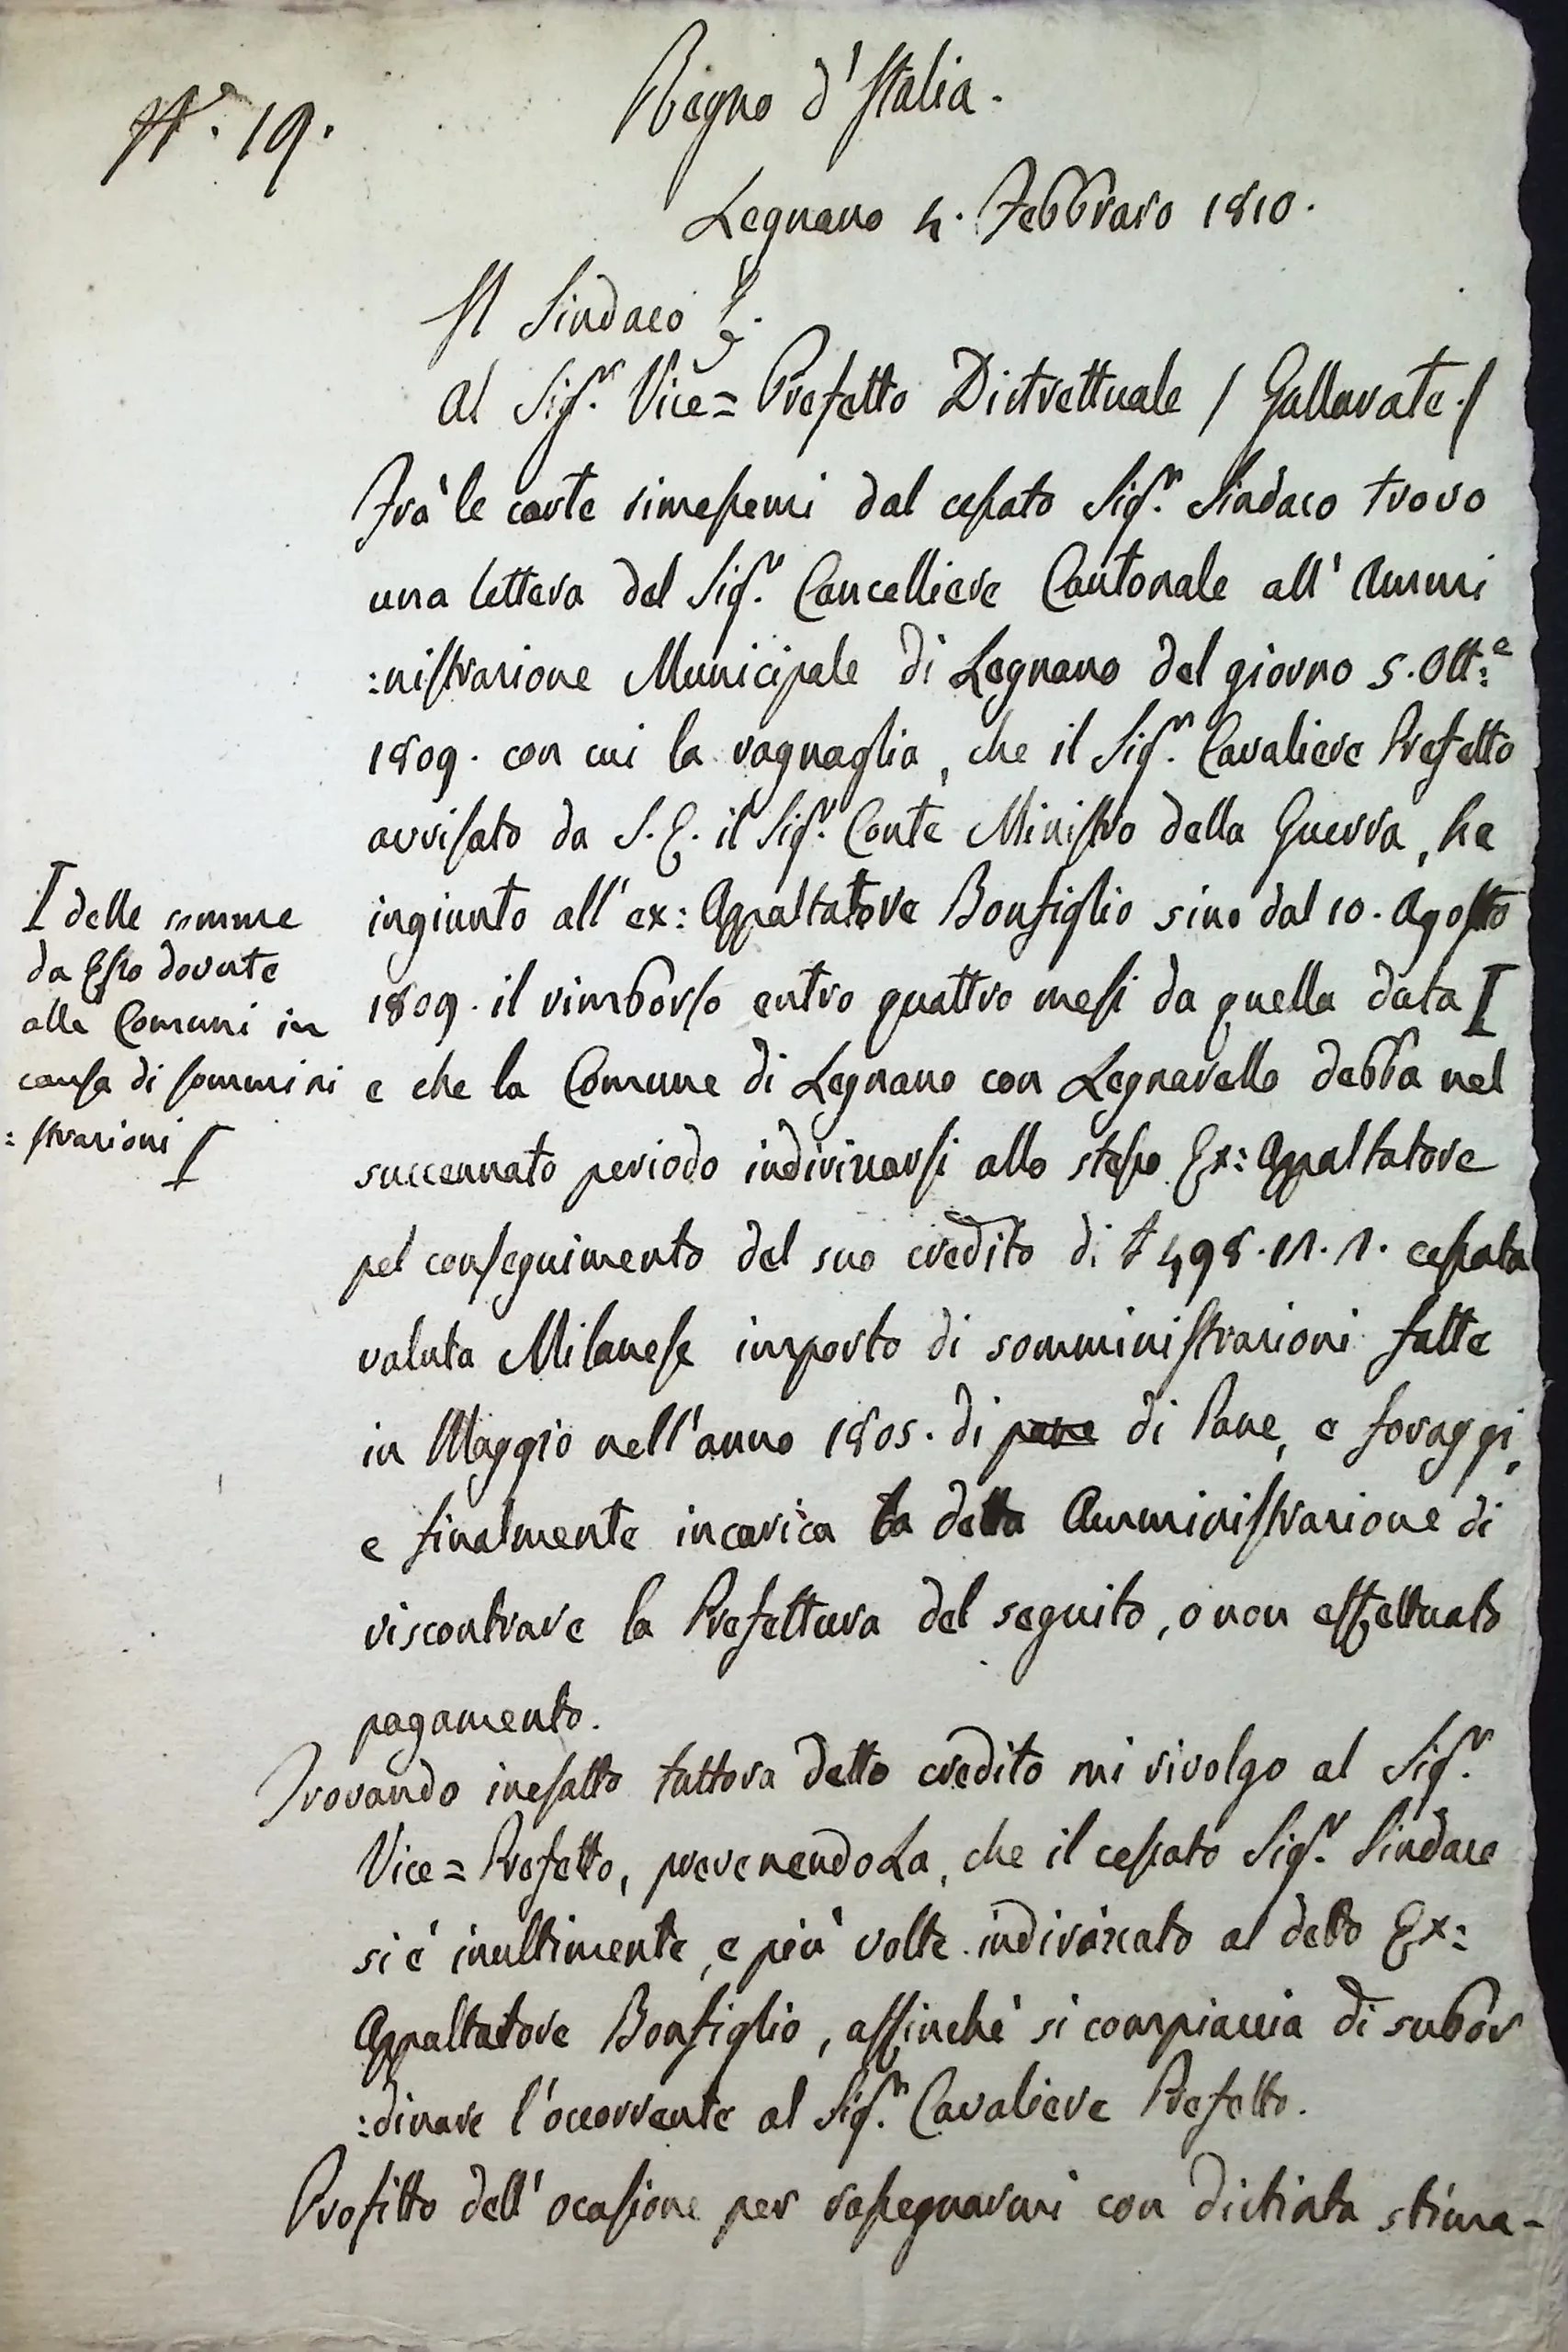 N.° 19.
Regno d'Italia.
Legnano 4. Febbraro 1810.
Il Sindaco
Al Sig.r Vice= Prefetto Distrettuale / Gallarate./
Frà le carte rimessemi dal cessato Sig.r Sindaco trovo
una lettera del Sig.r Cancelliere Cantonale all' Ammi
:nistrazione Municipale di Legnano del giorno 5. Ott:e
1809. con cui la ragnaglia, che il Sig.r Cavaliere Prefetto
avvisato da S. E. il Sig.r Conte Ministro della Guerra, ha
ingiunto all' ex: Appaltatore Bonfiglio sino dal 10. Agosto
1809. il rimborso entro quattro mesi da quella data I
I delle somme
da Esso dovute
alle Comuni in
causa di sommini
:strazioni I
e che la Comune di Legnano con Legnarello debba nel
succennato periodo indirizzarsi allo stesso Ex: Appaltatore
pel conseguimento del suo credito di £ 498.11.1. cessata
valuta Milanese importo di somministrazioni fatte
in Maggio nell'anno 1805. di pane di Pane, e foraggi,
e finalmente incarica la detta Amministrazione di
riscontrare la Prefettura del seguito, o non effettuato
pagamento.
Trovando inesatto tuttora detto credito mi rivolgo al Sig.r
Vice= Prefetto, prevenendoLa, che il cessato Sig.r Sindaco
si è inultimente, e più volte indirizzato al detto Ex:
Appaltatore Bonfiglio, affinchè si compiaccia di subor
:dinare l'occorrente al Sig.r Cavaliere Prefetto.
Profitto dell' ocasione per rassegnarmi con distinta stima-